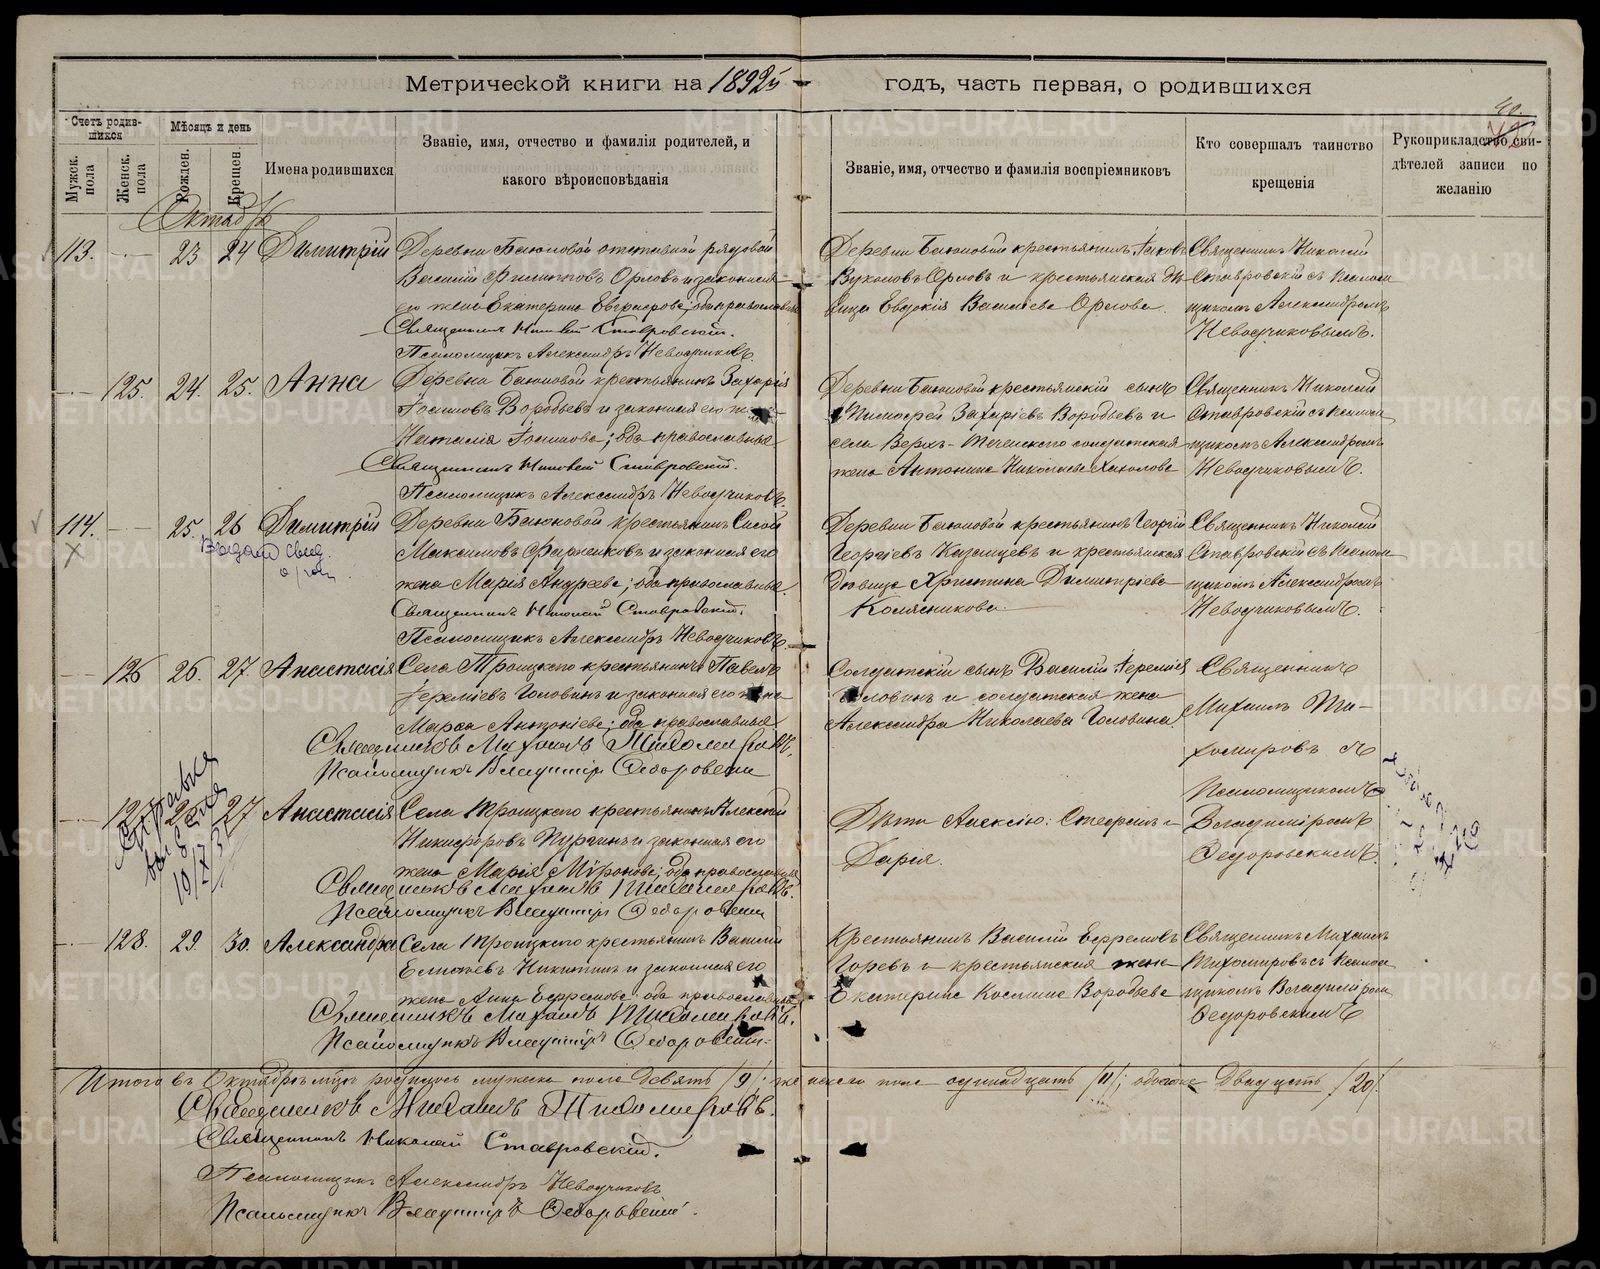 Метрической книги на 1892й годъ, часть первая, о родившихся
Счетъ родившихся
Мѣсяцъ и день
Мужск. пола
Женск. пола
Рожден.
Крещен.
Имена родившихся
Званіе, имя, отчество и фамилія родителей, и
какого вѣроисповѣданія
Званіе, имя, отчество и фамилія воспріемниковъ
Кто совершалъ таинство
крещенія
Рукоприкладство сви-
дѣтелей записи по
желанію
Октябрь
113. 23 24 Димитрій
Деревни Баюновой отставной рядовой
Василій Филипповъ Орловъ и законная
его жена Екатерина Евграфова; оба православные
Священникъ Николай Ставровскій.
Псаломщикъ Александръ Неводчиковъ.
Деревни Баюновой крестьянинъ Іаковъ
Вуколовъ Орловъ и крестьянская дѣ-
вица Евдокія Васильева Орлова.
Священникъ Николай
Ставровскій съ псалом-
щикомъ Александромъ
Неводчиковымъ.
125. 24. 25. Анна
Деревни Баюновой крестьянинъ Захарія
Воробьевъ и законная его
Наталія; оба православные
Священникъ Николай Ставровскій.
Псаломщикъ Александръ Неводчиковъ.
Деревни Баюновой крестьянскій сынъ
Захаріевъ Воробьевъ и
села Верхъ-Теченского солдатская
жена Антонина Николаева
Священникъ Николай
Ставровскій съ псалом-
щикомъ Александромъ
Неводчиковымъ.
114. 25. 26 Димитрій
Деревни Баюновой крестьянинъ Сысой
Максимовъ и законная его
жена Марія Андреева; оба православные.
Священникъ Николай Ставровскій.
Псаломщикъ Александръ Неводчиковъ.
Деревни Баюновой крестьянинъ Георгій
Георгіевъ Казанцевъ и крестьянская
дѣвица Христина Димитріева
Колясникова.
Священникъ Николай
Ставровскій съ псалом-
щикомъ Александромъ
Неводчиковымъ.
126 26. 27. Анастасія
Села Троицкого крестьянинъ Павелъ
Іереміевъ Головинъ и законная его жена
Марѳа Антоніева; оба православные
Священникъ Михаилъ Тихомировъ.
Псаломщикъ Владиміръ Федоровскій
Солдатскій сынъ Василій Іереміевъ
Головинъ и солдатская жена
Александра Николаева Головина.
Священникъ
Михаилъ Ти-
хомировъ съ
псаломщикомъ
Владиміромъ
Федоровскимъ.
127 27 Анастасія
Села Троицкого крестьянинъ Алексій
Никифоровъ и законная его
жена Марія Миронова; оба православные
Священникъ Михаилъ Тихомировъ.
Псаломщикъ Владиміръ Федоровскій
Дѣти Алексію: Стефанъ и
Дарія.
128. 29. 30. Александра
Села Троицкого крестьянинъ Василій
Никитинъ и законная его
жена Анна Ефремова; оба православные
Священникъ Михаилъ Тихомировъ.
Псаломщикъ Владиміръ Федоровскій.
Крестьянинъ Василій Ефремовъ
и крестьянская жена
Екатерина Космина Воробьева
Священникъ Михаилъ
Тихомировъ съ псалом-
щикомъ Владиміромъ
Федоровскимъ
Итого въ Октябрѣ мѣсяцѣ родилось мужеска пола девять /9/; женскаго пола одиннадцать /11/; обоего двадцать /20/.
Священникъ Михаилъ Тихомировъ.
Священникъ Николай Ставровскій.
Псаломщикъ Александръ Неводчиковъ
Псаломщикъ Владиміръ Федоровскій.
METRIKI.GASO-URAL.RU